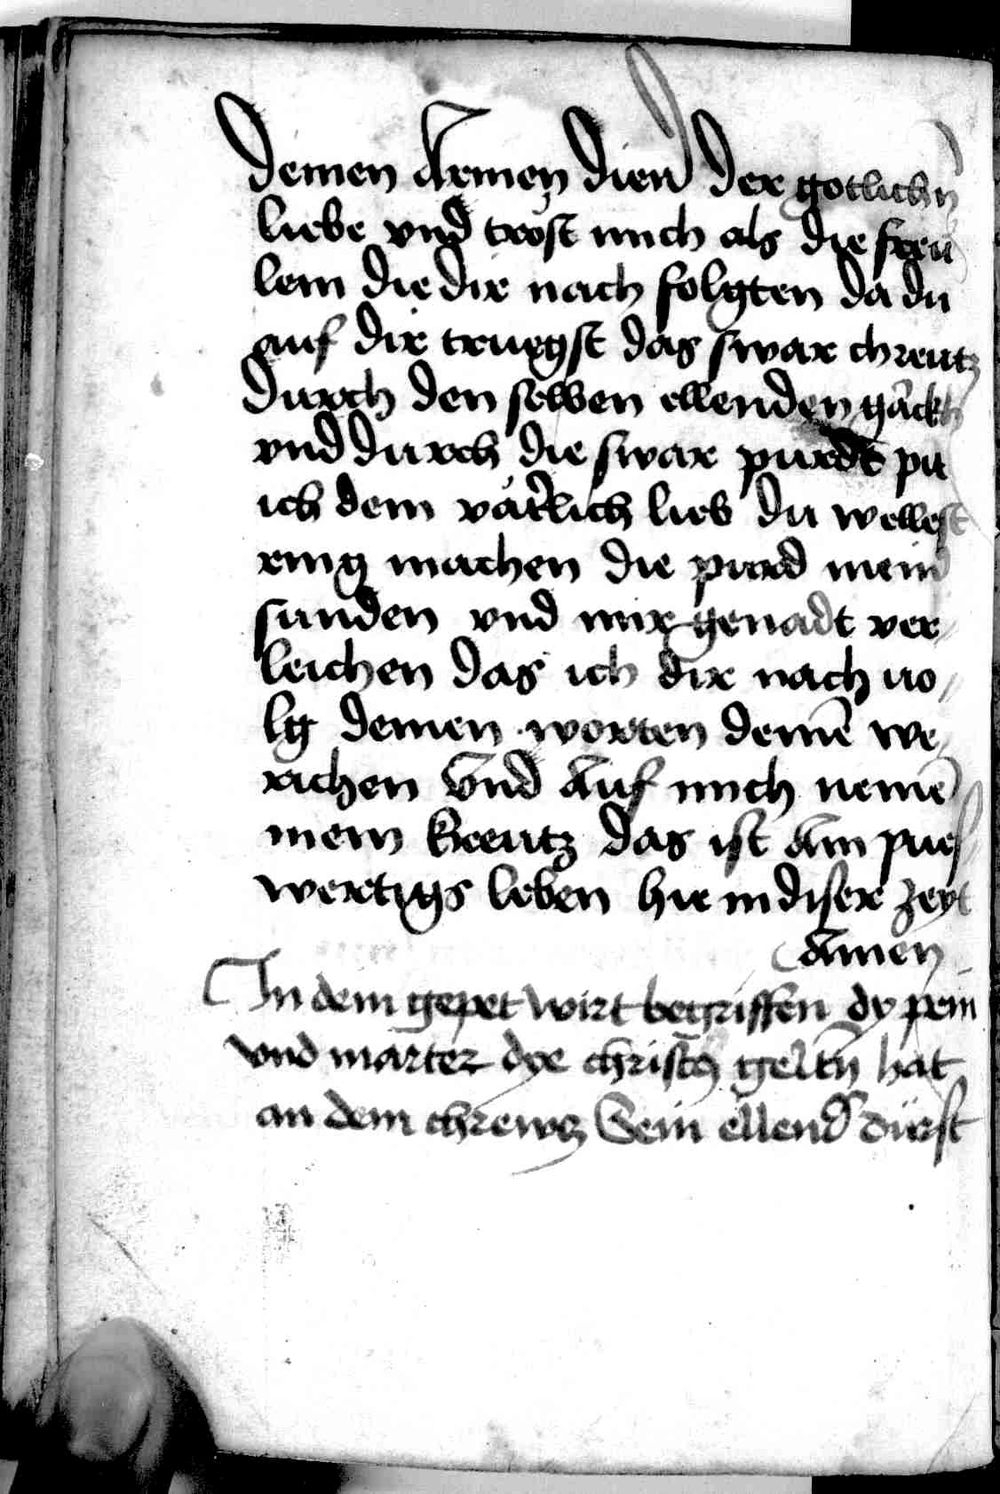 deinen Armen dien̄ der gotlichn̄
liebe vnd trost mich als die freü
lein die dir nach folgten da du
auf dir truegst das swar chreutz
durch den selben ellenden gäckh
vnd durch die swar purdt pit
ich dein vät̄lich lieb du wellest
ring machen die purd mein̄
sunden vnd mir genadt ver
leichen das ich dir nach uo
lg deinen worten deinē we
richen Vnd Auf mich nemē
mein kreutz das ist Ain pues
wertigs leben hie in diser zeyt
Amen
In dem gepet wirt begriffen dy pein
vnd marter dye christq gelitn̄ hat
an dem chrewcz Sein ellend durst